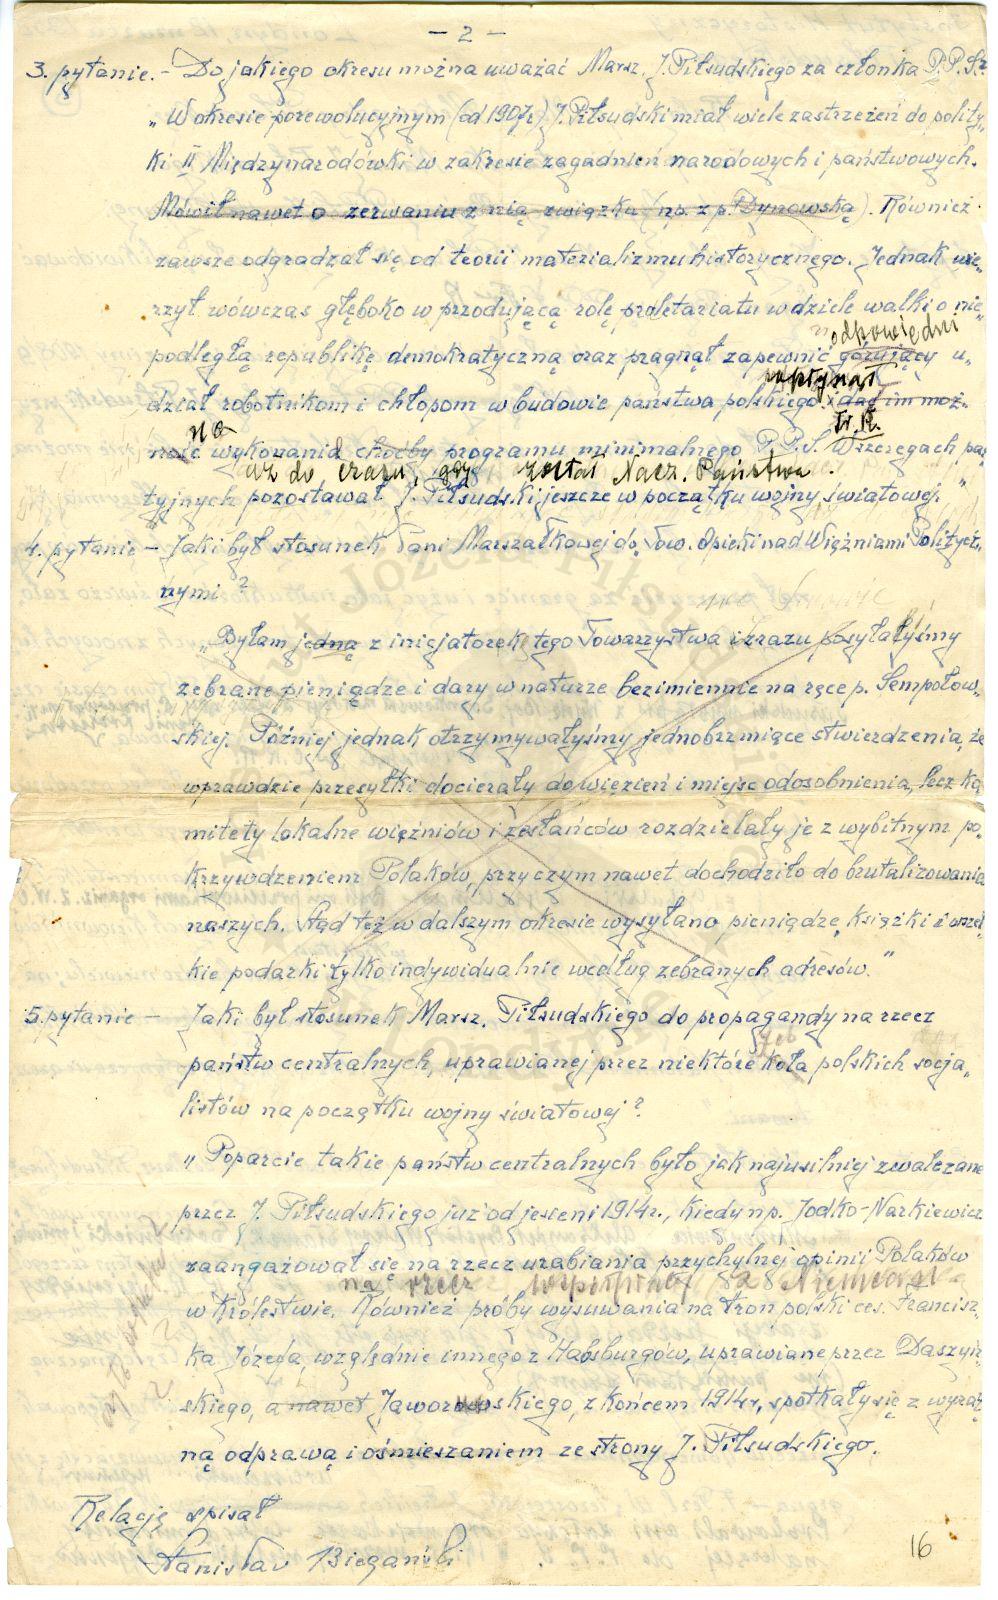 - 2 -
3. pytanie. - Do jakiego okresu można uważać Marsz. J. Piłsudskiego za członka P.P.S.?
„W okresie porewolucyjnym (od 1907r) J. Piłsudski miał wiele zastrzeżeń do polity„
ki II Międzynarodówki w zakresie zagadnień narodowych i państwowych.
Mówił nawet o zerwaniu z nią związku (np. z p. Dynowską). Również
zawsze odgradzał się od teorii materializmu historycznego. Jednak wie„
rzył wówczas głęboko w przodującą rolę proletariatu w dziele walki o nie„
odpowiedni
podległą republikę demokratyczną oraz pragnął zapewnić górujący u„
dział robotnikom i chłopom w budowie państwa polskiego i dać im moż„
na
ność wykonania choćby programu minimalnego P.P.S. W szeregach par„
aż do czasu, gdy został Nacz. Państwa.
tyjnych pozostawał J. Piłsudski jeszcze w początku wojny światowej."
4. pytanie - Jaki był stosunek Pani Marszałkowej do Tow. Opieki nad Więźniami Politycz„
nymi?
„Byłam jedną z inicjatorek tego Towarzystwa i zrazu posyłałyśmy
zebrane pieniądze i dary w naturze bezimiennie na ręce p. Sempołow„
skiej. Później jednak otrzymywałyśmy jednobrzmiące stwierdzenia, że
wprawdzie przesyłki docierały do więzień i miejsc odosobnienia, lecz ko„
mitety lokalne więźniów i zesłańców rozdzielały je z wybitnym po„
krzywdzeniem Polaków, przyczym nawet dochodziło do brutalizowania
naszych. Stąd też w dalszym okresie wysyłano pieniądze, książki i wszel„
kie podarki tylko indywidualnie według zebranych adresów."
5. pytanie - Jaki był stosunek Marsz. Piłsudskiego do propagandy na rzecz
państw centralnych, uprawianej przez niektóre koła polskich socja„
listów na początku wojny światowej?
„Poparcie takie państw centralnych było jak najusilniej zwalczane
przez J. Piłsudskiego już od jesieni 1914r., kiedy np. Jodko-Narkiewicz
zaangażował się na rzecz urabiania przychylnej opinii Polaków
na rzecz współpracy z Niemcami
w Królestwie. Również próby wysuwania na tron polski ces. Francisz„
ka Józefa, względnie innego z Habsburgów, uprawiane przez Daszyń„
skiego, a nawet Jaworowskiego, z końcem 1914r, spotkały się z wyraź„
ną odprawą i ośmieszaniem ze strony J. Piłsudskiego.
Relację spisał
Stanisław Biegański
16